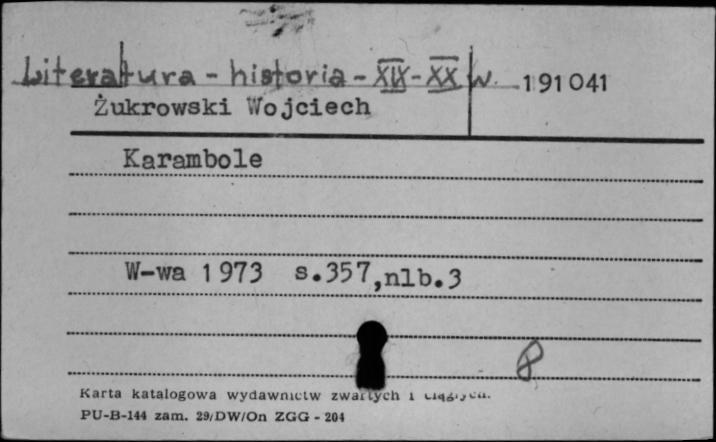 Literatura - historia - XIX - XX w. 191041
Żukrowski Wojciech
Karambole
W-wa 1973 s.357,nlb.3
8
Karta katalogowa wydawnictw zwartych i ciągłych.
PU-B-144 zam. 29/DW/On ZGG - 204